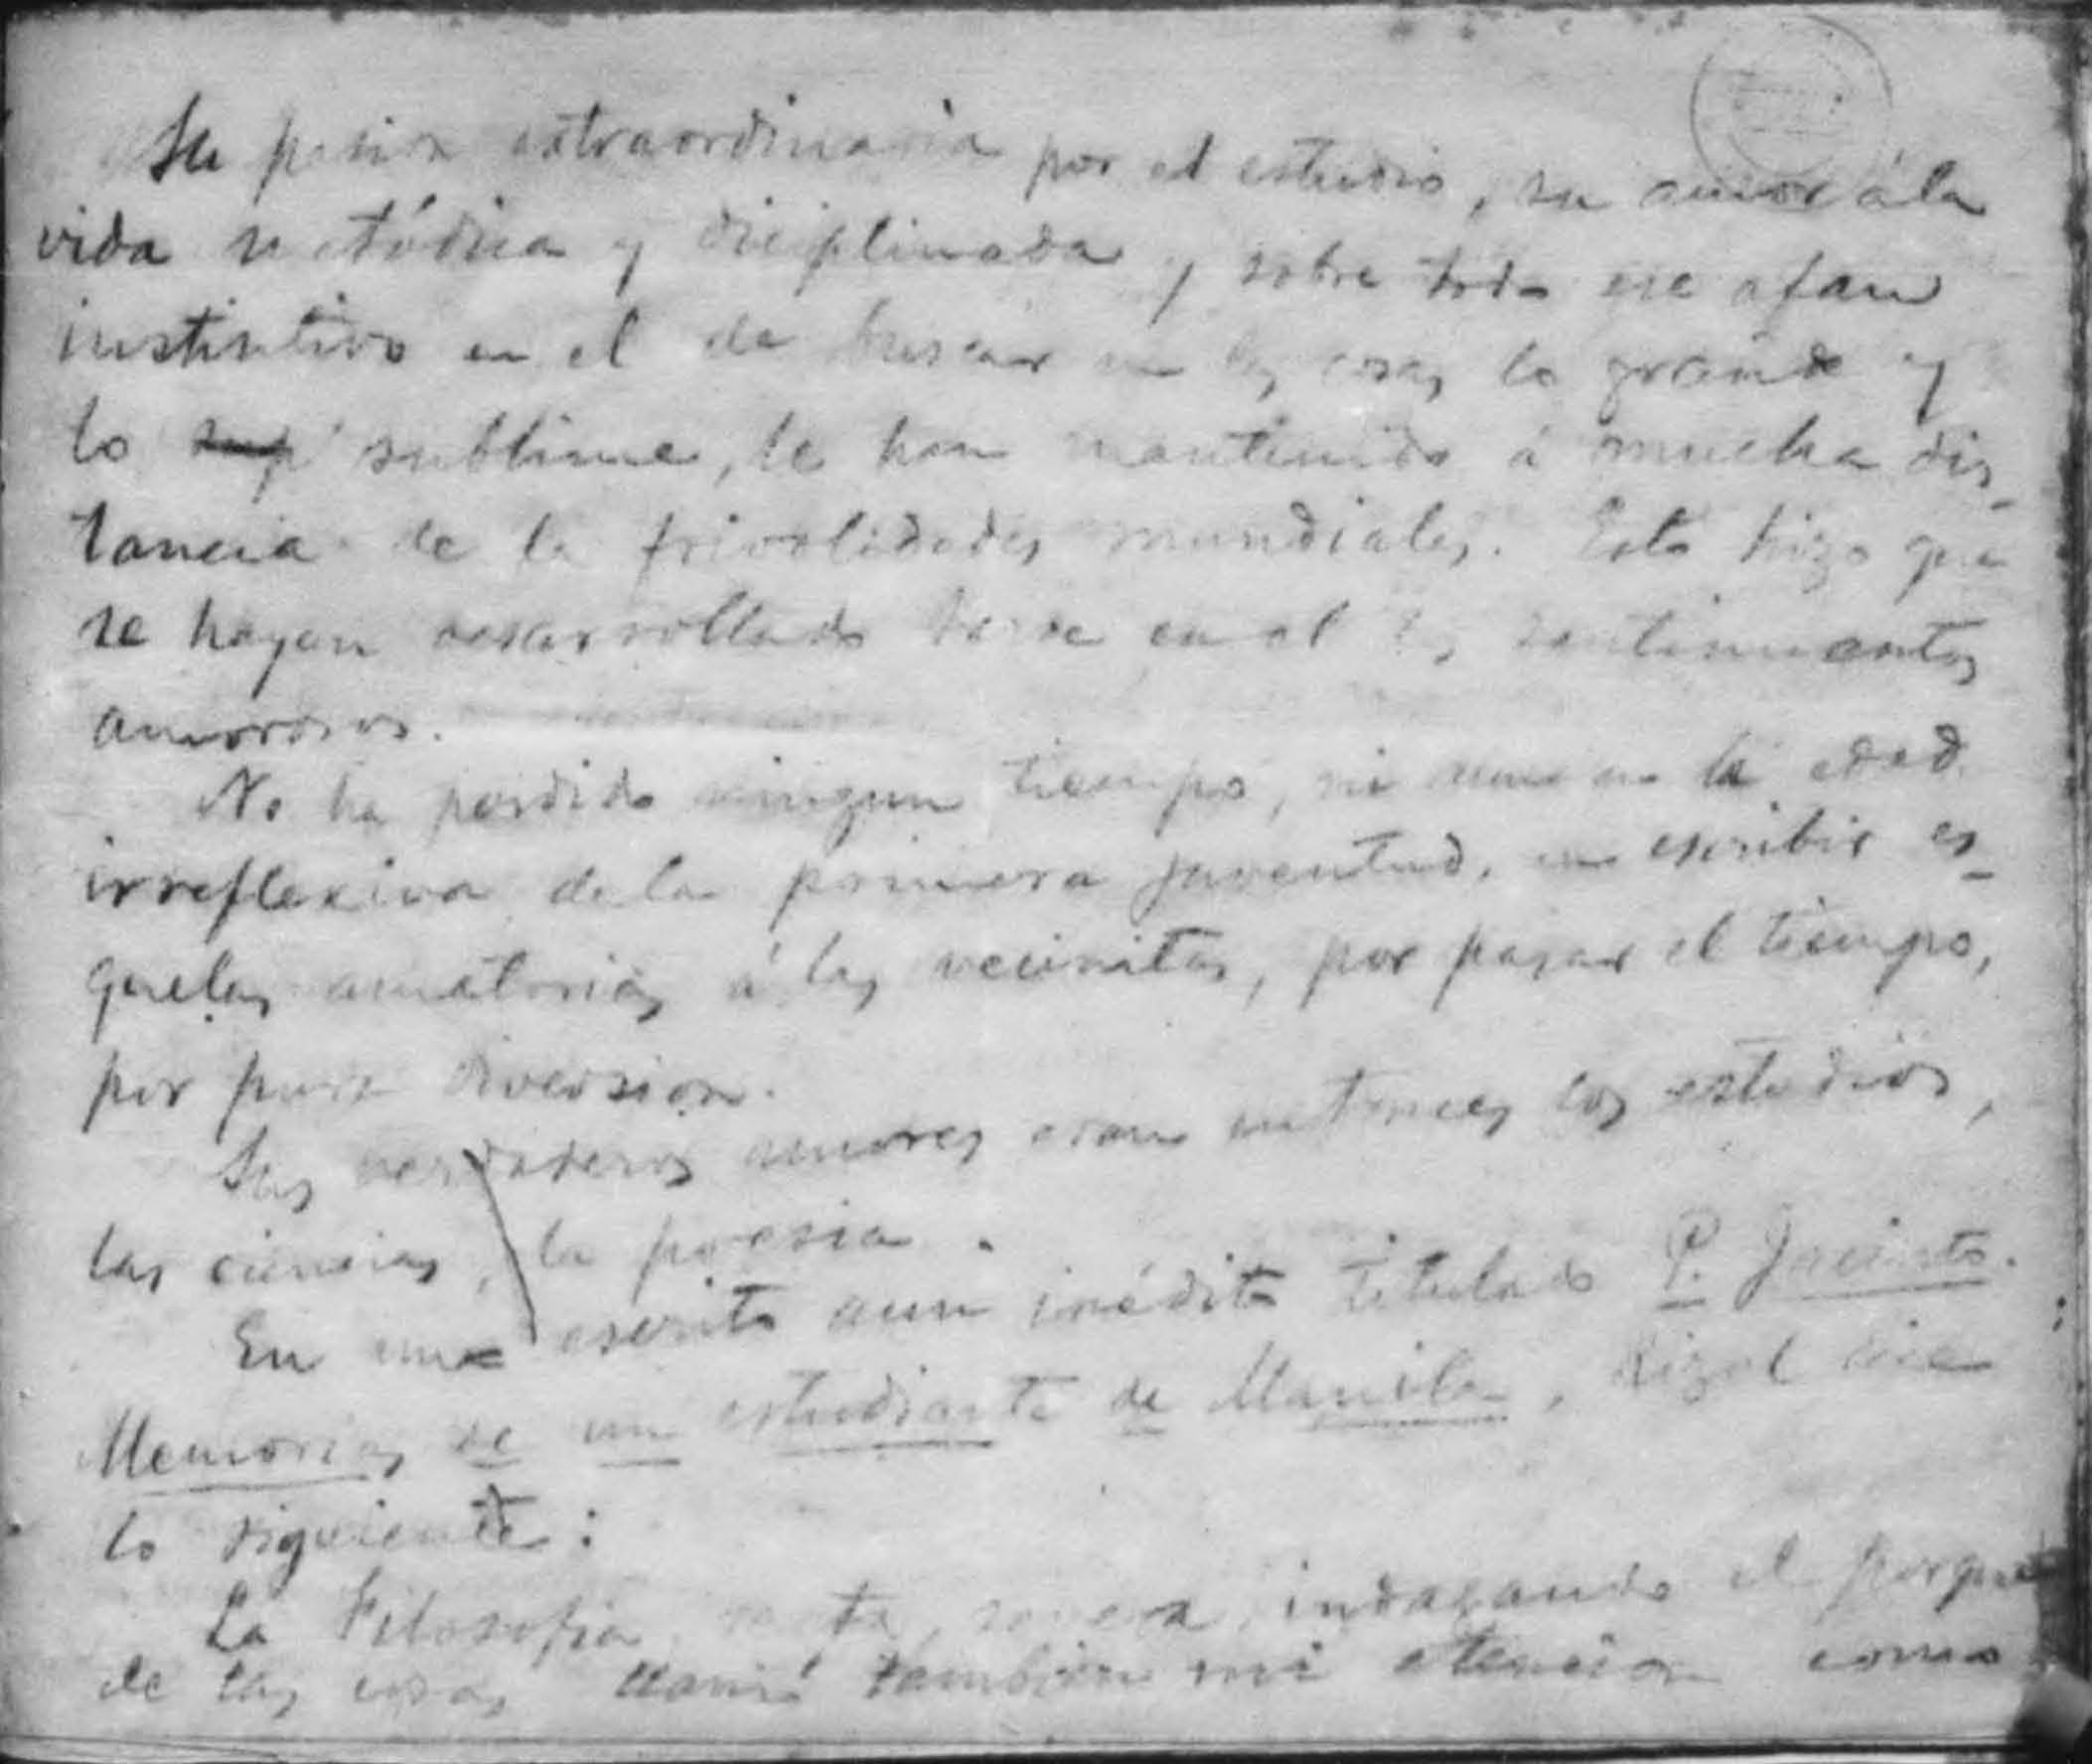 Su pasion extraordinaria por el estudio, su amor á la
vida metódica y diciplinada y sobre todo ese afan
instintivo en el de buscar en las cosas lo grande y
lo sup sublime, le han mantenido á mucha dis-
tancia de la frivolidades mundiales. Esto hizo que
se hayan desarrollado tarde en el los sentimientos
amorosos.
No ha perdido ningun tiempo, ni aun en la edad
irreflexiva de la primera juventud, en escribir es-
quelas amatorias á las vecinitas, por pasar el tiempo,
por pura diversion.
Sus verdaderos amores eran entonces los estudios,
las ciencias, la poesia.
En un escrito aun inédito titulado P. Jacinto.
Memorias de un estudiante de Manila, Rizal dice
lo siguiente:
La Filosofia severa, indagando el porque
de las cosas llamó tambien mi atencion como